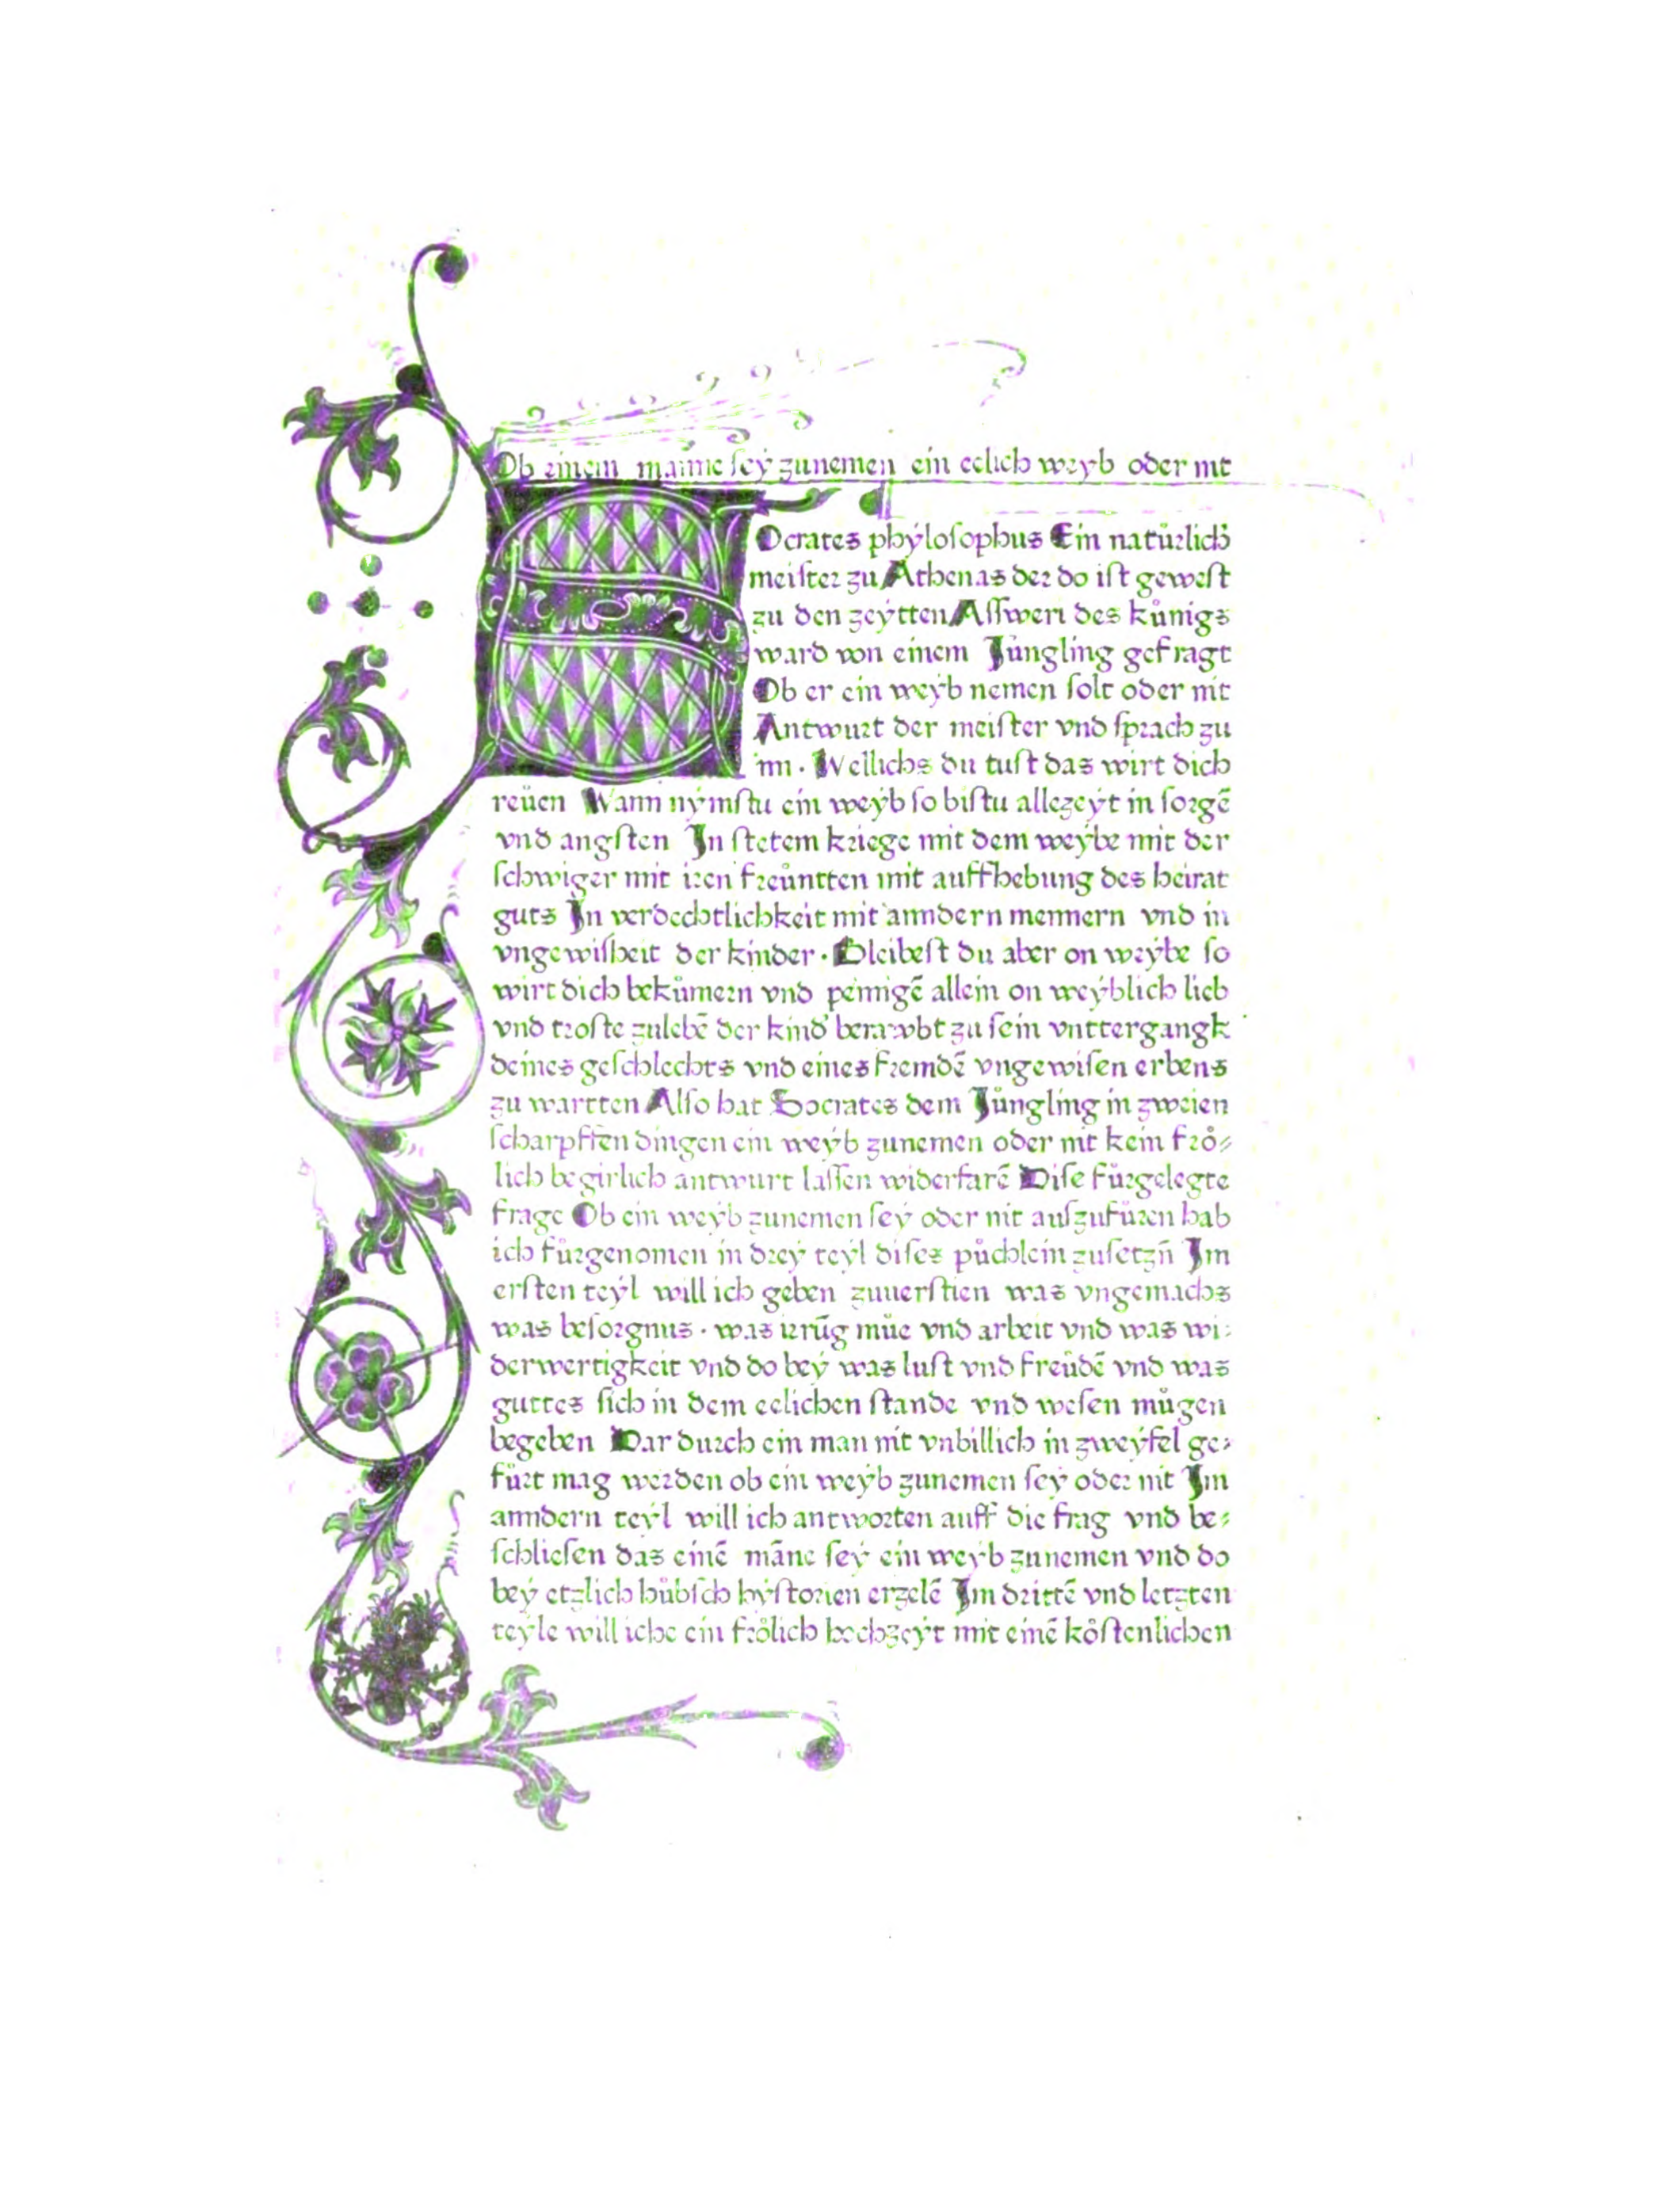 Ob einem manne ſey zunemen ein eelich weyb oder nit
SOcrates phyloſophus Ein natůrlich
meiſter zu Athenas der do iſt geweſt
zu den zeytten Aſſweri des kůnigs
ward von einem Jůngling gefragt
Ob er ein weyb nemen ſolt oder nit
Antwurt der meiſter vnd ſprach zu
im · Wellichs du tuſt das wirt dich
reüen Wann nymſtu ein weyb ſo biſtu allezeyt in ſorgē
vnd angſten In ſtetem kriege mit dem weybe mit der
ſchwiger mit iren freůntten mit auffhebung des heirat
guts In verdechtlichkeit mit anndern mennern vnd in
vngewiſheit der kinder · Bleibeſt du aber on weybe ſo
wirt dich bekůmern vnd peinigē allein on weyblich lieb
vnd troſte zulebē der kind berawbt zu ſein vnttergangk
deines geſchlechts vnd eines fremdē vngewiſen erbens
zu wartten Alſo hat Socrates dem Jůngling in zweien
ſcharpffen dingen ein weyb zunemen oder nit kein frő⸗
lich begirlich antwurt laſſen widerfarē Diſe fůrgelegte
frage Ob ein weyb zunemen ſey oder nit auſzufůren hab
ich fůrgenomen in drey teyl diſes půchlein zuſetzn̄ Im
erſten teyl will ich geben zuuerſtien was vngemachs
was beſorgnus · was irrūg můe vnd arbeit vnd was wi⸗
derwertigkeit vnd do bey was luſt vnd freůdē vnd was
guttes ſich in dem eelichen ſtande vnd weſen můgen
begeben Dar durch ein man nit vnbillich in zweyfel ge⸗
fůrt mag werden ob ein weyb zunemen ſey oder nit Im
anndern teyl will ich antworten auff die frag vnd be⸗
ſchlieſen das einē māne ſey ein weyb zunemen vnd do
bey etzlich hůbſch hyſtorien erzelē Im drittē vnd letzten
teyle will iche ein frőlich hochzeyt mit einē kőſtenlichen